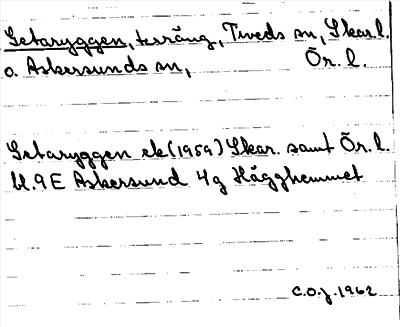 Getaryggen, terräng, Tiveds sn, Skar.l.
o. Askersunds sn, Ör. l.
Getaryggen ek (1959) Skar. samt Ör. l.
bl. 9E Askersund 4g Hägghemmet
C.O.J. 1962